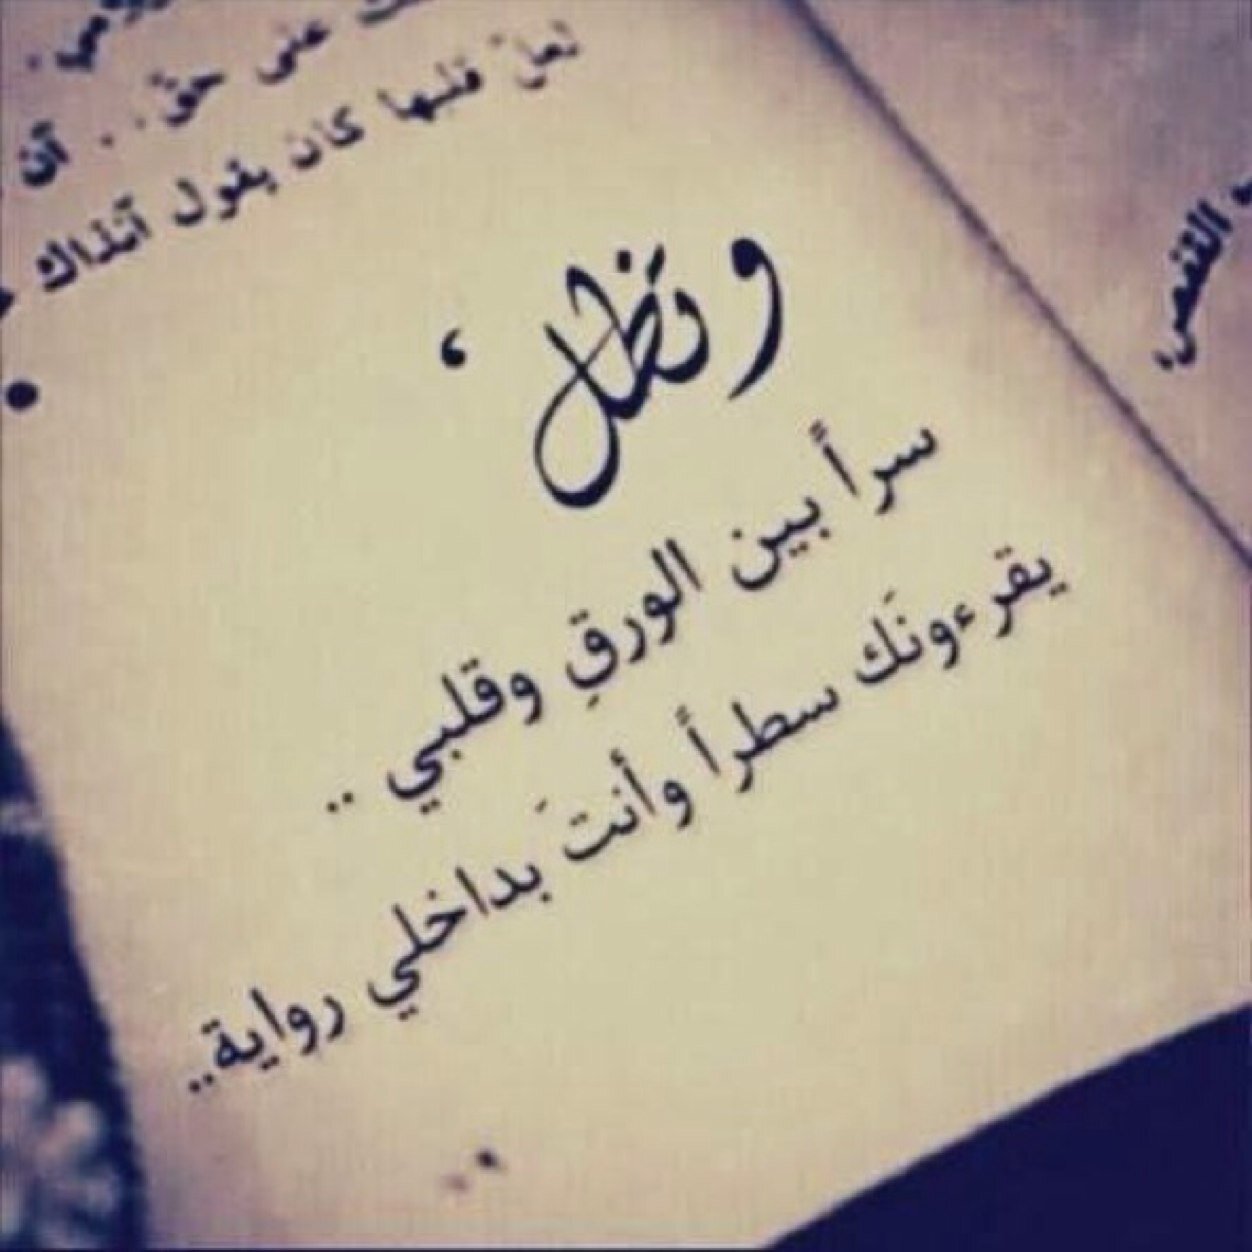 على حق.. آن
لعلّ قلبها كان يقول آنذاك
وتظل ،
سرأ بين الورقِ وقلبي ..
يقرءونَك سطرأ وأنتَ بداخلي رواية..
القفص